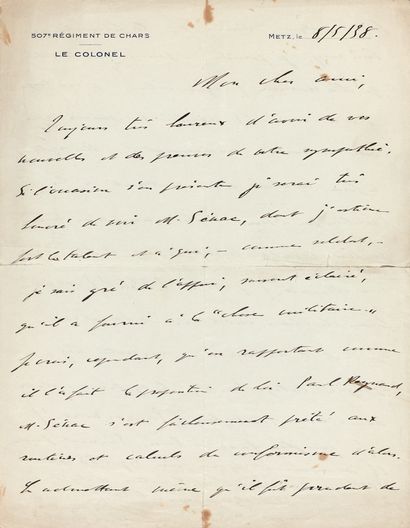 507e RÉGIMENT DE CHARS
LE COLONEL
METZ, le 8/5/38.
Mon cher ami,
Toujours très heureux d'avoir de vos
nouvelles et des preuves de votre sympathie.
Si l'occasion s'en présente je serai très
honoré de voir M. Sénac, dont j'estime
fort le talent et à qui, – comme soldat, –
je sais gré de l'appui, souvent éclairé,
qu'il a fourni à la "chose militaire".
Je crois, cependant, qu'en rapportant comme
il l'a fait la proposition de loi Paul Reynaud,
M. Sénac s'est fâcheusement prêté aux
routines et calculs du conformisme d'alors.
En admettant même qu'il fût prudent de